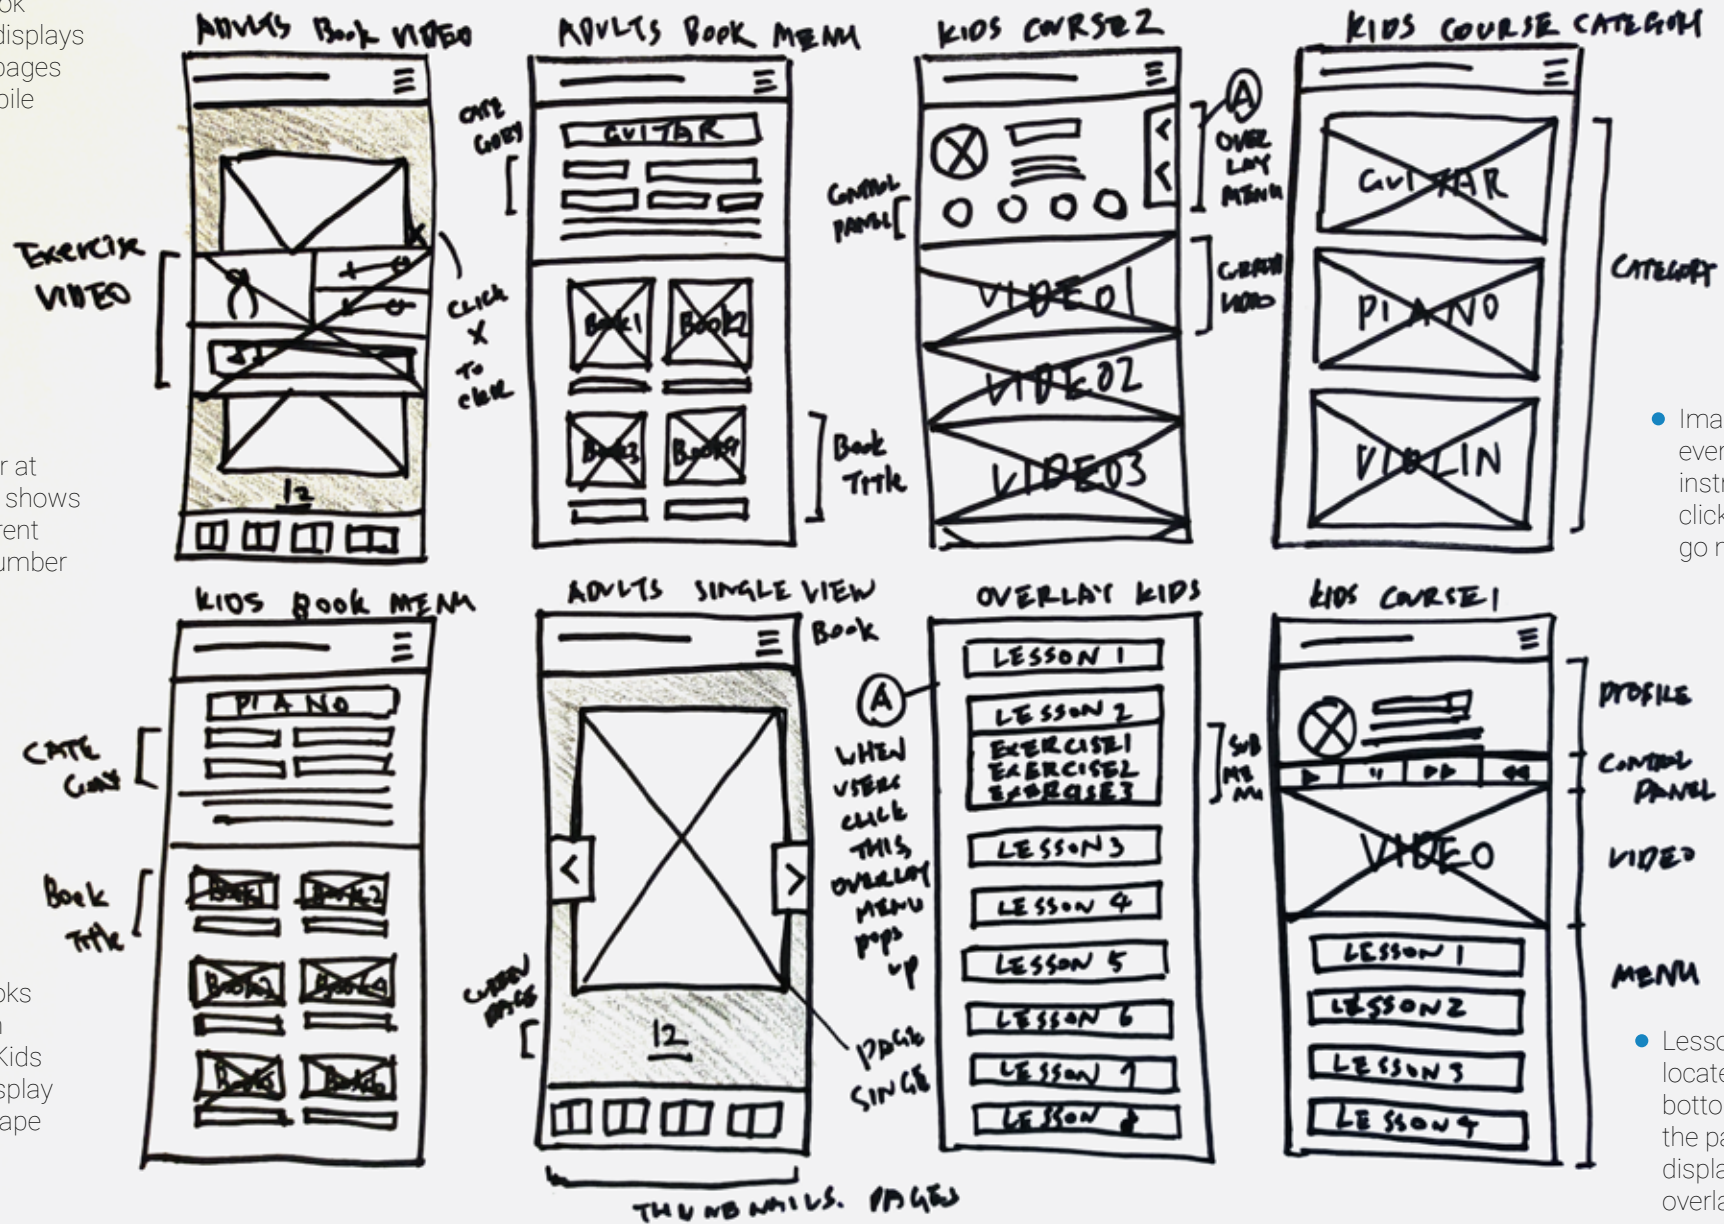 ok
displays
pages
bile
r at
shows
rent
umber
oks
n
Kids
splay
ape
ADULTS Book VIDEO
Exercise
VIDEO
CLICK
X
TO
12
ADULTS Book MENU
CATE
GORY
GUITAR
Book1
Book2
Book3
Book4
Book
Title
KIDS COURSE2
CONTROL
PANEL
<
<
A
OVER
LAY
MENU
VIDEO1
VIDEO2
VIDEO3
CURRENT
VIDEO
KIDS COURSE CATEGORY
GUITAR
PIANO
VIOLIN
CATEGORY
Ima
ever
instr
click
go n
KIDS BOOK MENU
PIANO
CATE
GORY
Book
Title
Book1
Book2
Book3
Book4
Book5
Book6
ADULTS SINGLE VIEW
Book
<
>
12
CURREN
PAGE
PAGE
SINGE
THUNBNAILS. PAGES
OVERLAY KIDS
A
WHEN
USERS
CLICK
THIS,
OVERLAY
MENU
POPS
UP
LESSON 1
LESSON 2
EXERCISE1
EXERCISE2
EXERCISE3
SUB
ME
NU
LESSON3
LESSON 4
LESSON 5
LESSON 6
LESSON 7
LESSON 8
KIDS COURSE1
PROFILE
CONTROL
PANEL
VIDEO
VIDEO
MENU
LESSON 1
LESSON2
LESSON 3
LESSON4
Lesso
locate
botto
the pa
displa
overla